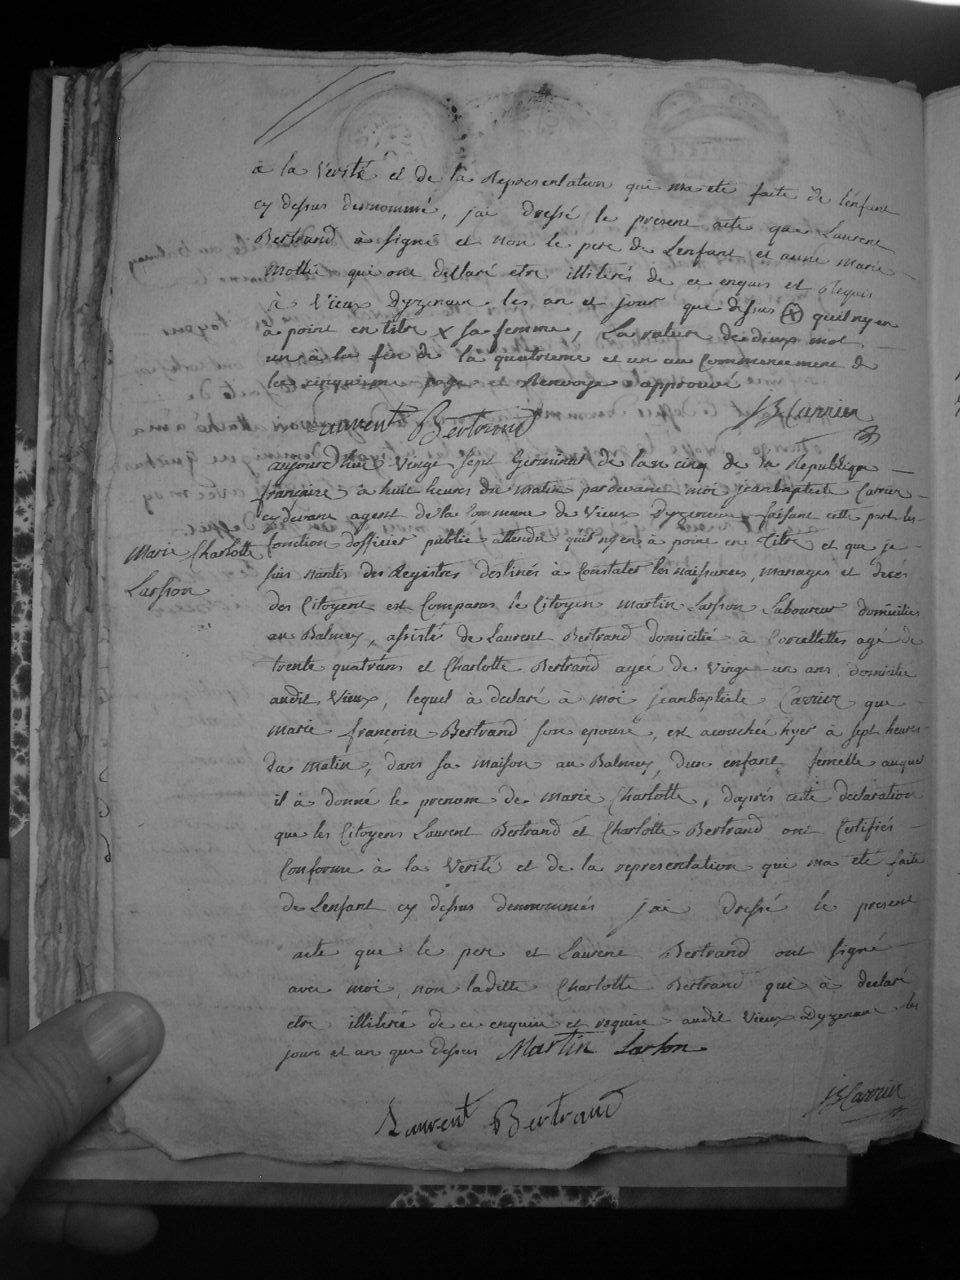 à la Verité et de la Representation qui ma eté faite de lenfant
cy dessus denommé, jai dressé le present acte que Laurent
Bertrand à signé et non le pere de Lenfant et anne Marie
Mollie qui ont déclaré etre illitirés de ce enquis et Requis
à Vieux Dyzenave les an et jour que dessus ⓧ quil ny en
à point en titre x sa femme, La rature de deux mot
un à la fin de la quatrieme et un au Commencement de
la cinquieme page et Renvoye approuvé
Laurent Bertrand JBCarrier
aujourdhui Vingt Sept Germinal de lan cinq de la Republique
francaise à huit heures du matin pardevant moi jeanbaptiste Carrier
cydevant agent de la Commune de Vieux Dyzenave faisant cette part les
fonction dofficier publié attendu quil ny en à point en Titre et que je
suis nantis des Registres destinés à Constater les naissances, mariages et decés
Marie Charlotte
Larson
des Citoyens est Comparus le Citoyen Martin Larson Laboureur domicilié
au Balmey, assisté de Laurent Bertrand domicilié à Corcellettes agé de
trente quatre ans et Charlotte Bertrand agée de Vingt un ans domicilié
audit Vieux, lequel à declaré à moi jeanbaptiste Carrier que
Marie francoise Bertrand son epouse, est acouchée hyer à sept heures
du Matin, dans sa maison au Balmey, dun enfant femelle auquel
il à donné le prenom de Marie Charlotte, daprés cette declaration
que les Citoyens Laurent Bertrand et Charlotte Bertrand ont Certifiés
Conforme à la Verité et de la representation qui ma eté faite
de Lenfant cy dessus denommés jai dressé le present
acte que le pere et Laurent Bertrand ont signé
avec moi, non laditte Charlotte Bertrand qui à declaré
etre illitiré de ce enquise et requise audit Vieux Dyzenave les
jours et an que Dessus Martin Larson
Laurent Bertrand JBCarrier